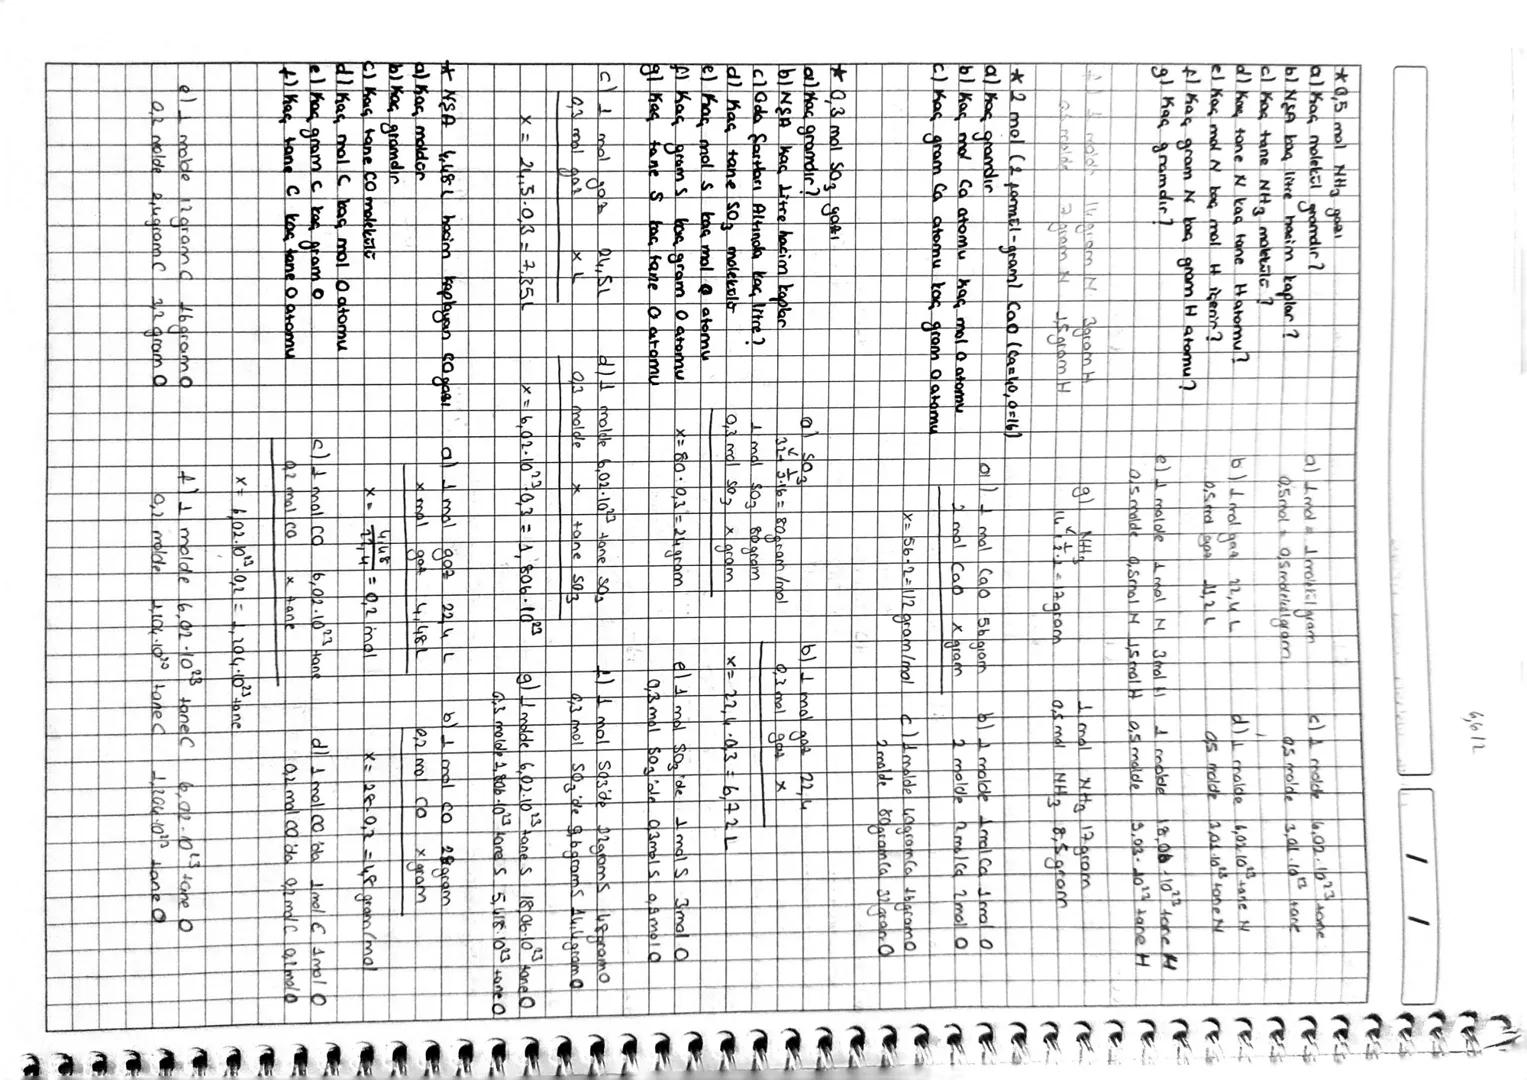 6,612
/ /
* 0,5 mol NH₃ gazı
a) Kaç molekül gramdır?
b) NŞA kaç litre hacim kaplar?
c) Kaç tane NH₃ molekülü?
d) Kaç tane N kaç tane H atomu?
e) Kaç mol N kaç mol H içerir?
f) Kaç gram N kaç gram H atomu?
g) Kaç gramdır?
a) 1 mol = 1 molekül gram
0,5 mol = 0,5 molekül gram
b) 1 mol gaz 22,4 L
0,5 mol gaz 11,2 L
c) 1 molde 6,02·10²³ tane
0,5 molde 3,01·10²³ tane
d) 1 molde 6,02·10²³ tane N
0,5 molde 3,01·10²³ tane N
1 molde 18,06·10²³ tane H
0,5 molde 9,03·10²³ tane H
e) 1 molde 1 mol N 3 mol H
0,5 molde 0,5 mol N 1,5 mol H
f) 1 molde 14 gram N 3 gram H
0,5 molde 7 gram N 1,5 gram H
g) NH₃
= 17 gram
1 mol NH₃ 17 gram
0,5 mol NH₃ 8,5 gram
* 2 mol (2 formül-gram) CaO (Ca=40, O=16)
a) Kaç gramdır
b) Kaç mol Ca atomu kaç mol O atomu
c) Kaç gram Ca atomu kaç gram O atomu
a) 1 mol CaO 56 gram
2 mol CaO x gram
x = 56·2 = 112 gram/mol
b) 1 molde 1 mol Ca 1 mol O
2 molde 2 mol Ca 2 mol O
c) 1 molde 40 gram Ca 16 gram O
2 molde 80 gram Ca 32 gram O
* 0,3 mol SO₃ gazı
a) Kaç gramdır?
b) NŞA kaç litre hacim kaplar
c) Oda Şartları Altında kaç litre?
d) Kaç tane SO₃ molekülü
e) Kaç mol S kaç mol O atomu
f) Kaç gram S kaç gram O atomu
g) Kaç tane S kaç tane O atomu
a) SO₃
32+3·16 = 80 gram/mol
1 mol SO₃ 80 gram
0,3 mol SO₃ x gram
x = 80·0,3 = 24 gram
b) 1 mol gaz 22,4
0,3 mol gaz x
x = 22,4·0,3 = 6,72 L
c) 1 mol gaz 24,5 L
0,3 mol gaz x L
x = 24,5·0,3 = 7,35 L
d) 1 molde 6,02·10²³ tane SO₃
0,3 molde x tane SO₃
x = 6,02·10²³·0,3 = 1,806·10²³
e) 1 mol SO₃'de 1 mol S 3 mol O
0,3 mol SO₃'de 0,3 mol S 0,9 mol O
f) 1 mol SO₃'de 32 gram S 48 gram O
0,3 mol SO₃'de 9,6 gram S 14,4 gram O
g) 1 molde 6,02·10²³ tane S 18,06·10²³ tane O
0,3 molde 1,806·10²³ tane S 5,418·10²³ tane O
* NŞA 4,48 L hacim kaplayan CO gazı
a) Kaç moldür
b) Kaç gramdır
c) Kaç tane CO molekülü
d) Kaç mol C kaç mol O atomu
e) Kaç gram C kaç gram O
f) Kaç tane C kaç tane O atomu
a) 1 mol gaz 22,4 L
x mol gaz 4,48 L
x = 4,48/22,4 = 0,2 mol
b) 1 mol CO 28 gram
0,2 mol CO x gram
x = 28·0,2 = gram/mol
c) 1 mol CO 6,02·10²³ tane
0,2 mol CO x tane
x = 6,02·10²³·0,2 = 1,204·10²³ tane
d) 1 mol CO'da 1 mol C 1 mol O
0,2 mol CO'da 0,2 mol C 0,2 mol O
e) 1 molde 12 gram C 16 gram O
0,2 molde 2,4 gram C 3,2 gram O
f) 1 molde 6,02·10²³ tane C 6,02·10²³ tane O
0,2 molde 1,204·10²³ tane C 1,204·10²³ tane O